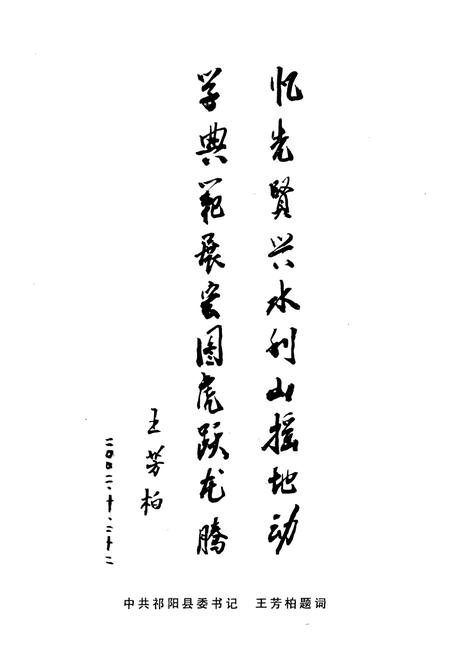 忆先賢兴水利山摇地动
学典範展宏图虎跃龙腾
王芳柏
二〇〇二.十.二十二
中共祁阳县委书记　王芳柏题词